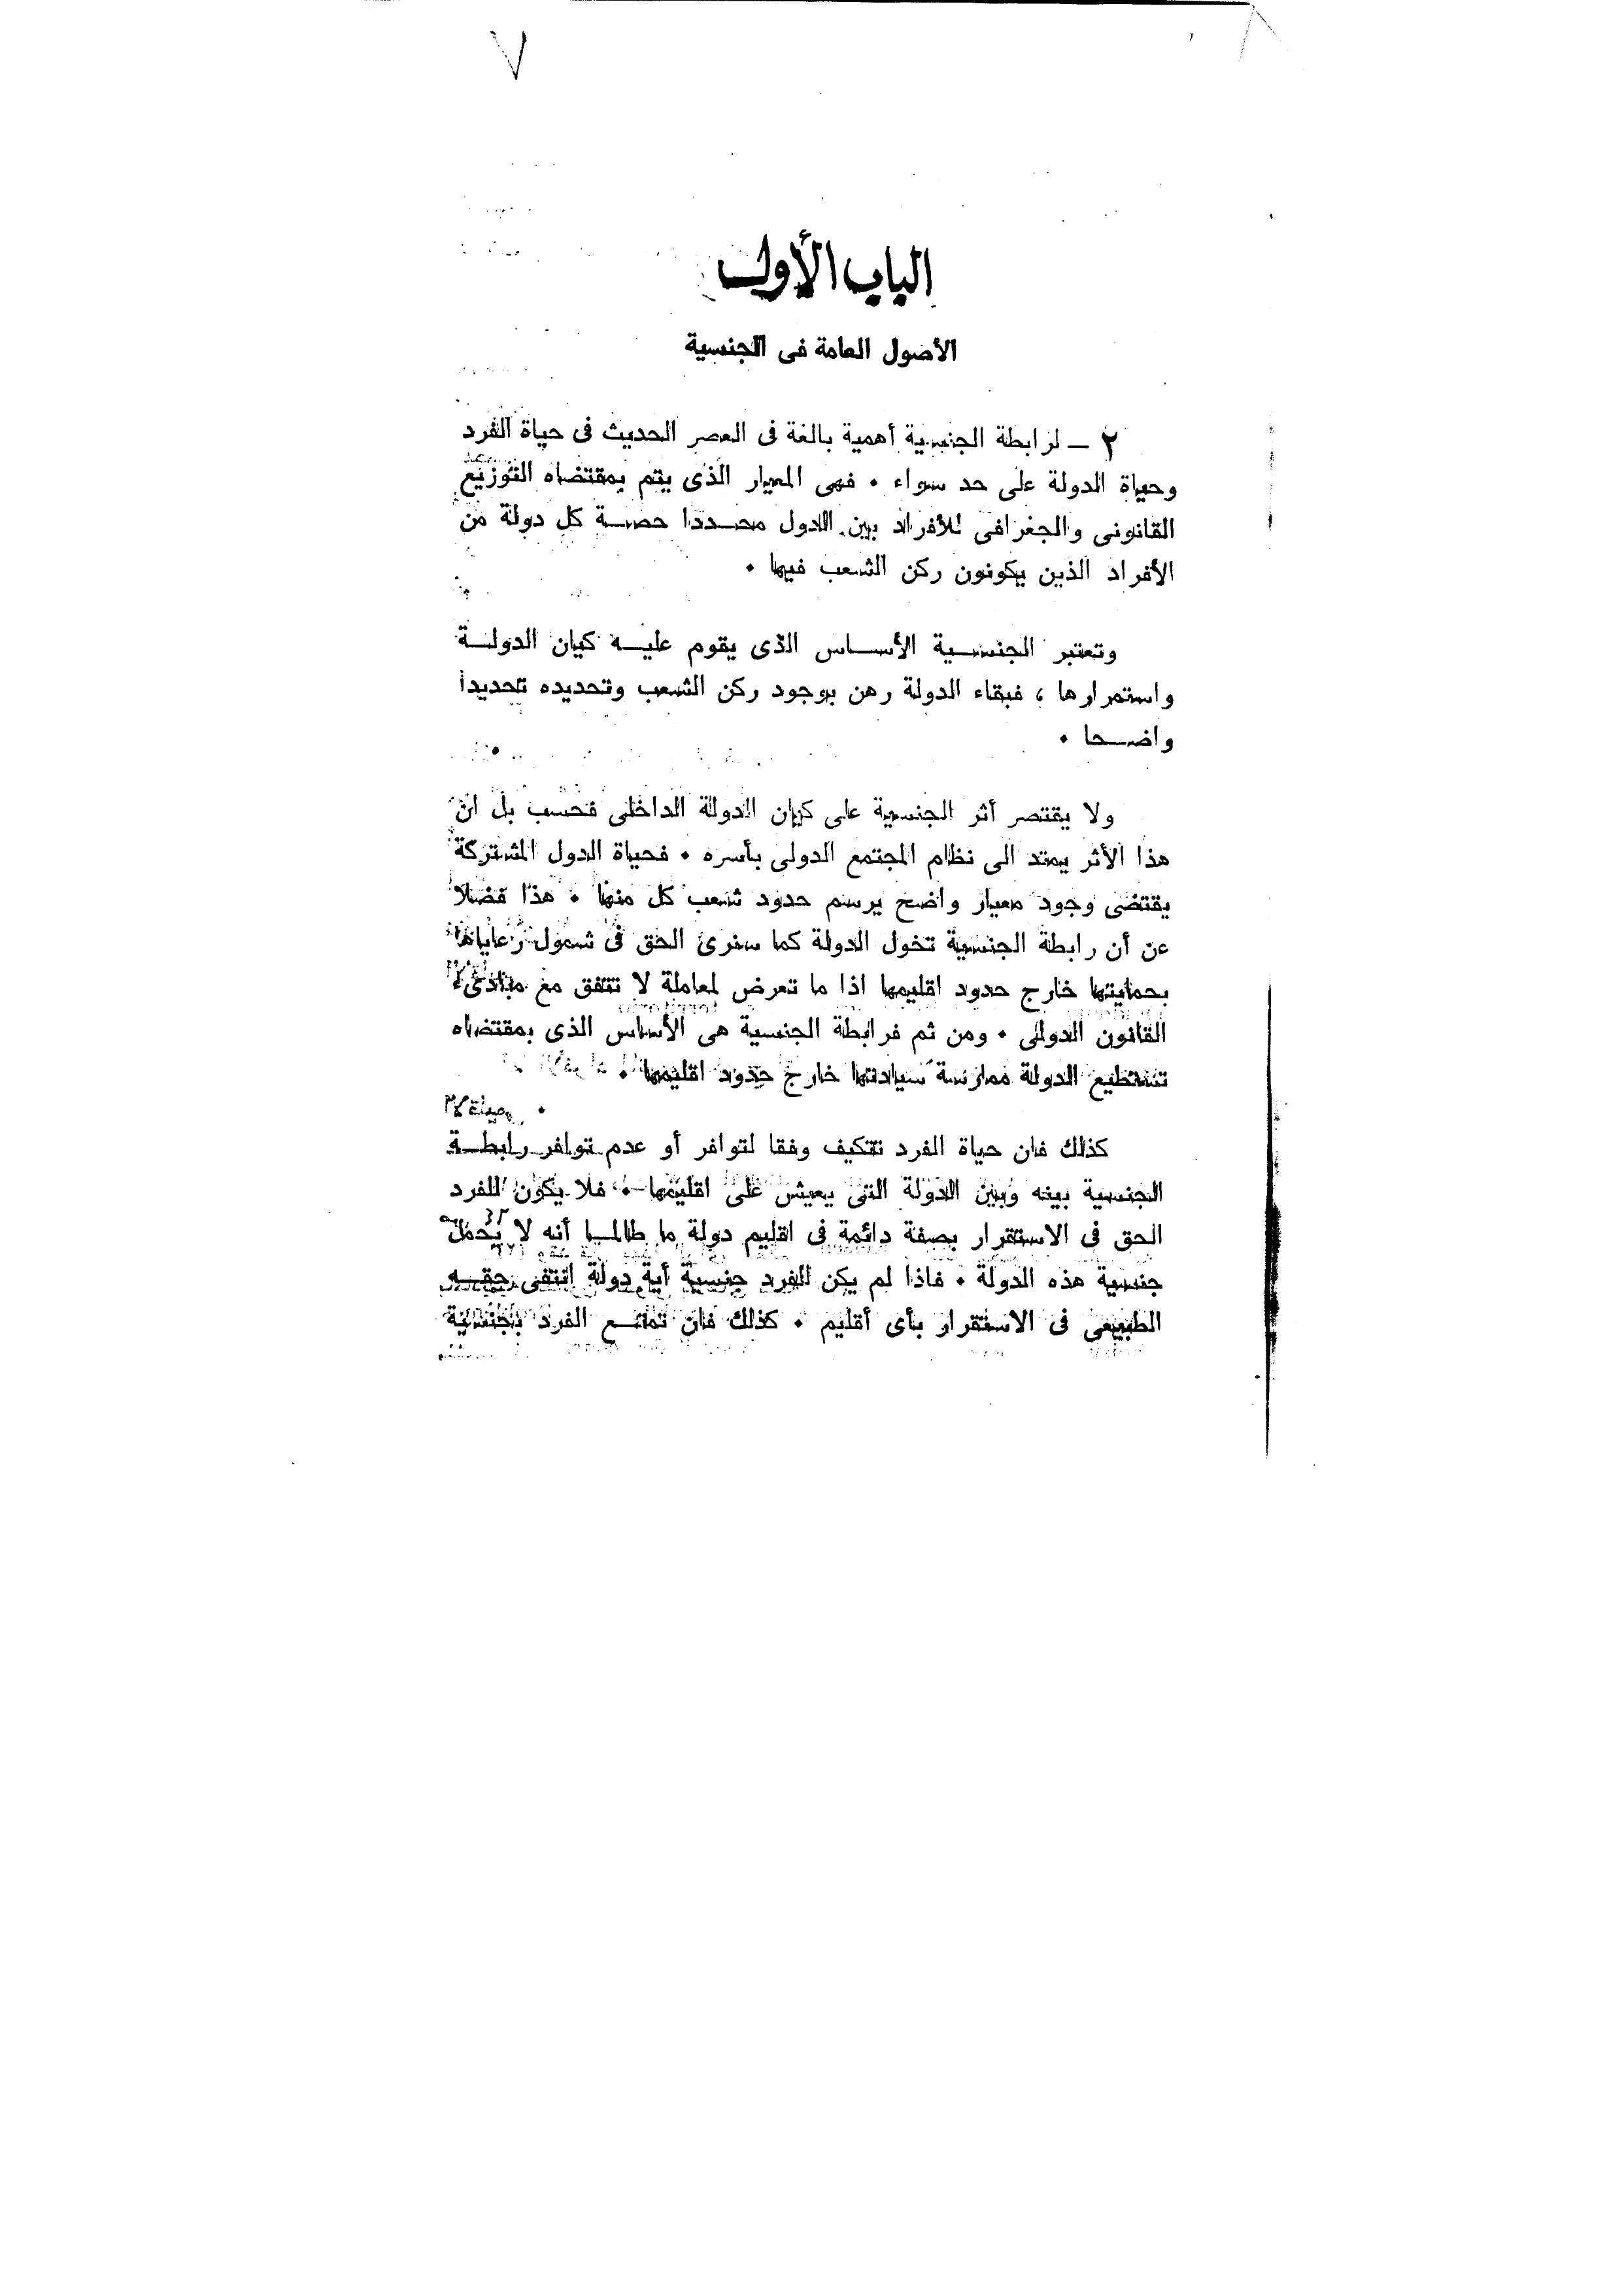 ٧
الباب الأول
الأصول العامة فى الجنسية
٢ — لرابطة الجنسية أهمية بالغة فى العصر الحديث فى حياة الفرد
وحياة الدولة على حد سواء ٠ فهى المعيار الذى يتم بمقتضاه التوزيع
القانونى والجغرافى للأفراد بين الدول محددا حصة كل دولة من
الأفراد الذين يكونون ركن الشعب فيها ٠
وتعتبر الجنسية الأساس الذى يقوم عليه كيان الدولة
واستمرارها ، فبقاء الدولة رهن بوجود ركن الشعب وتحديده تحديدا
واضحا ٠
ولا يقتصر أثر الجنسية على كيان الدولة الداخلى فحسب بل ان
هذا الأثر يمتد الى نظام المجتمع الدولى بأسره ٠ فحياة الدول المشتركة
يقتضى وجود معيار واضح يرسم حدود شعب كل منها ٠ هذا فضلا
عن أن رابطة الجنسية تخول الدولة كما سنرى الحق فى شمول رعاياها
بحمايتها خارج حدود اقليمها اذا ما تعرض لمعاملة لا تتفق مع مبادىء
القانون الدولى ٠ ومن ثم فرابطة الجنسية هى الأساس الذى بمقتضاه
تستطيع الدولة ممارسة سيادتها خارج حدود اقليمها ٠
كذلك فان حياة الفرد تتكيف وفقا لتوافر أو عدم توافر رابطة
الجنسية بينه وبين الدولة التى يعيش على اقليمها ٠ فلا يكون للفرد
الحق فى الاستقرار بصفة دائمة فى اقليم دولة ما طالما أنه لا يحمل
جنسية هذه الدولة ٠ فاذا لم يكن للفرد جنسية أية دولة انتفى حقه
الطبيعى فى الاستقرار بأى أقليم ٠ كذلك فان تمتع الفرد بجنسية